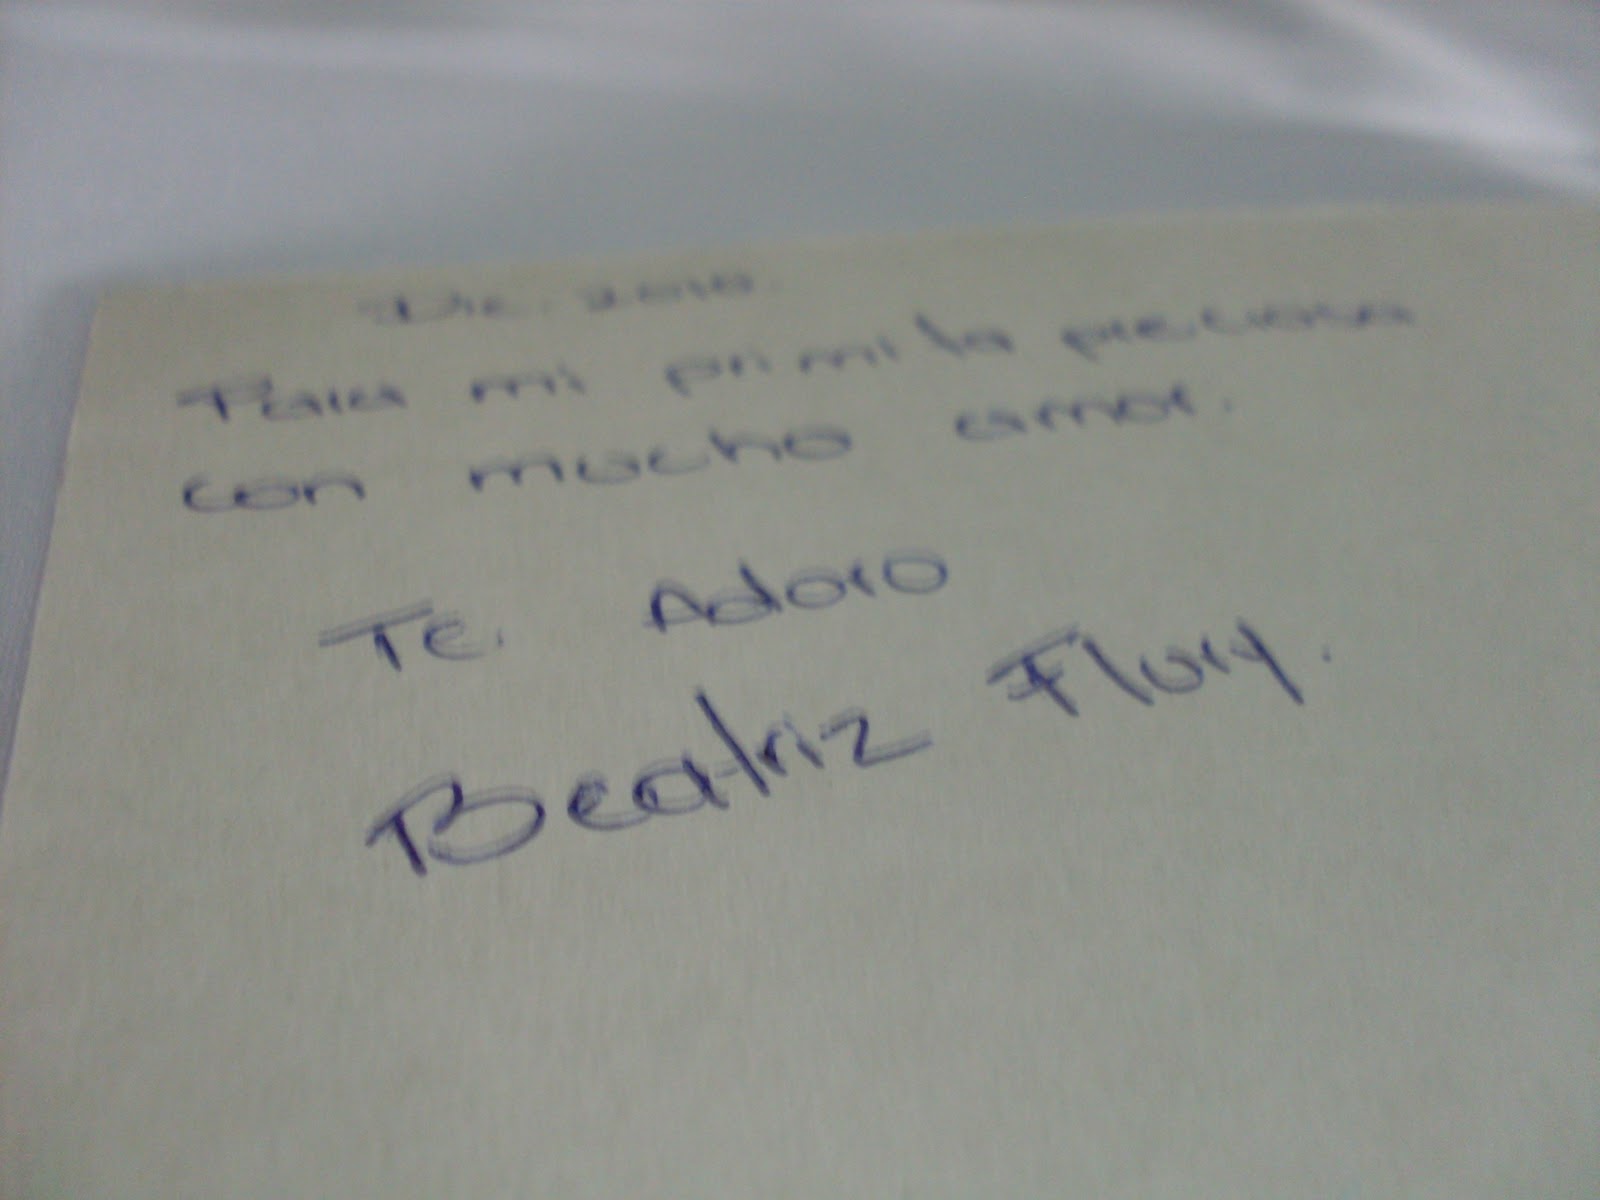 Dic. 2010.
Para mi primita preciosa
con mucho amor.
Te. Adoro
Beatriz Flory.